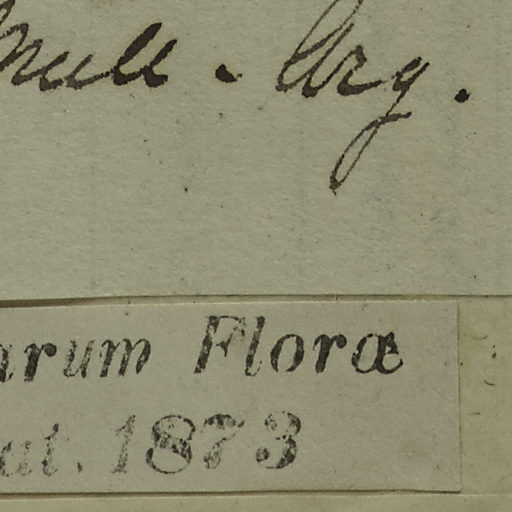 Mull. Arg.
arum Floræ
at. 1873